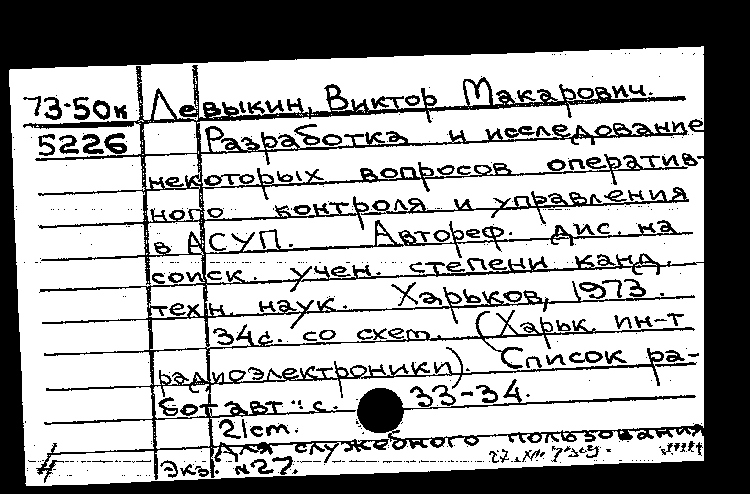 73-50к Левыкин, Виктор Макарович.
5226 Разработка и исследование
некоторых вопросов оператив-
ного контроля и управления
в АСУП. Автореф. дис. на
соиск. учен. степени канд.
техн. наук. Харьков, 1973.
34с. со схем. (Харьк. ин-т
радиоэлектроники). Список ра-
бот авт.: с. 33-34.
21см.
Для служебного пользования
Экз. №27.